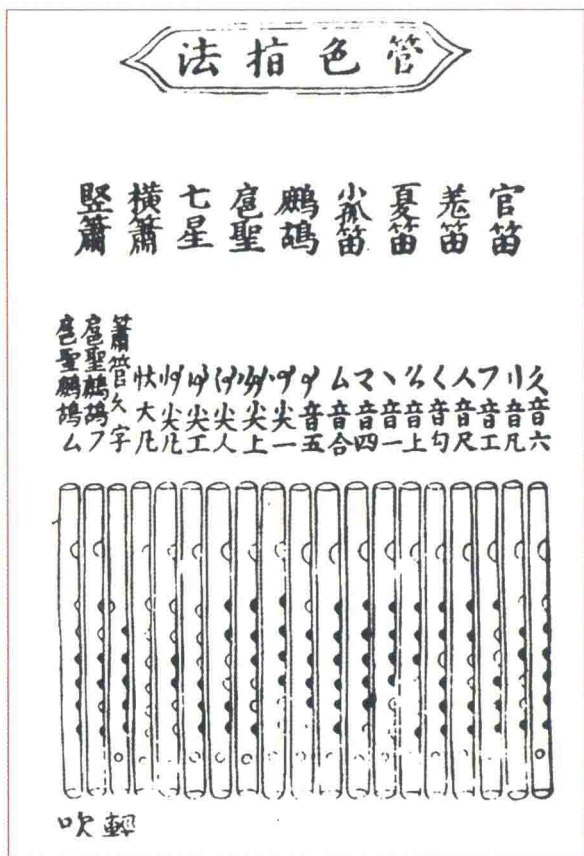 管色指法
官笛
羌笛
夏笛
小孤笛
鷓鴣
扈聖
七星
橫簫
竪簫
久音六
リ音凡
フ音工
人音尺
く音勾
么音上
丶音一
マ音四
厶音合
音五
尖一
尖上
尖人
尖工
尖凡
大凡
簫管久字
扈聖鷓鴣フ
扈聖鷓鴣厶
輕吹